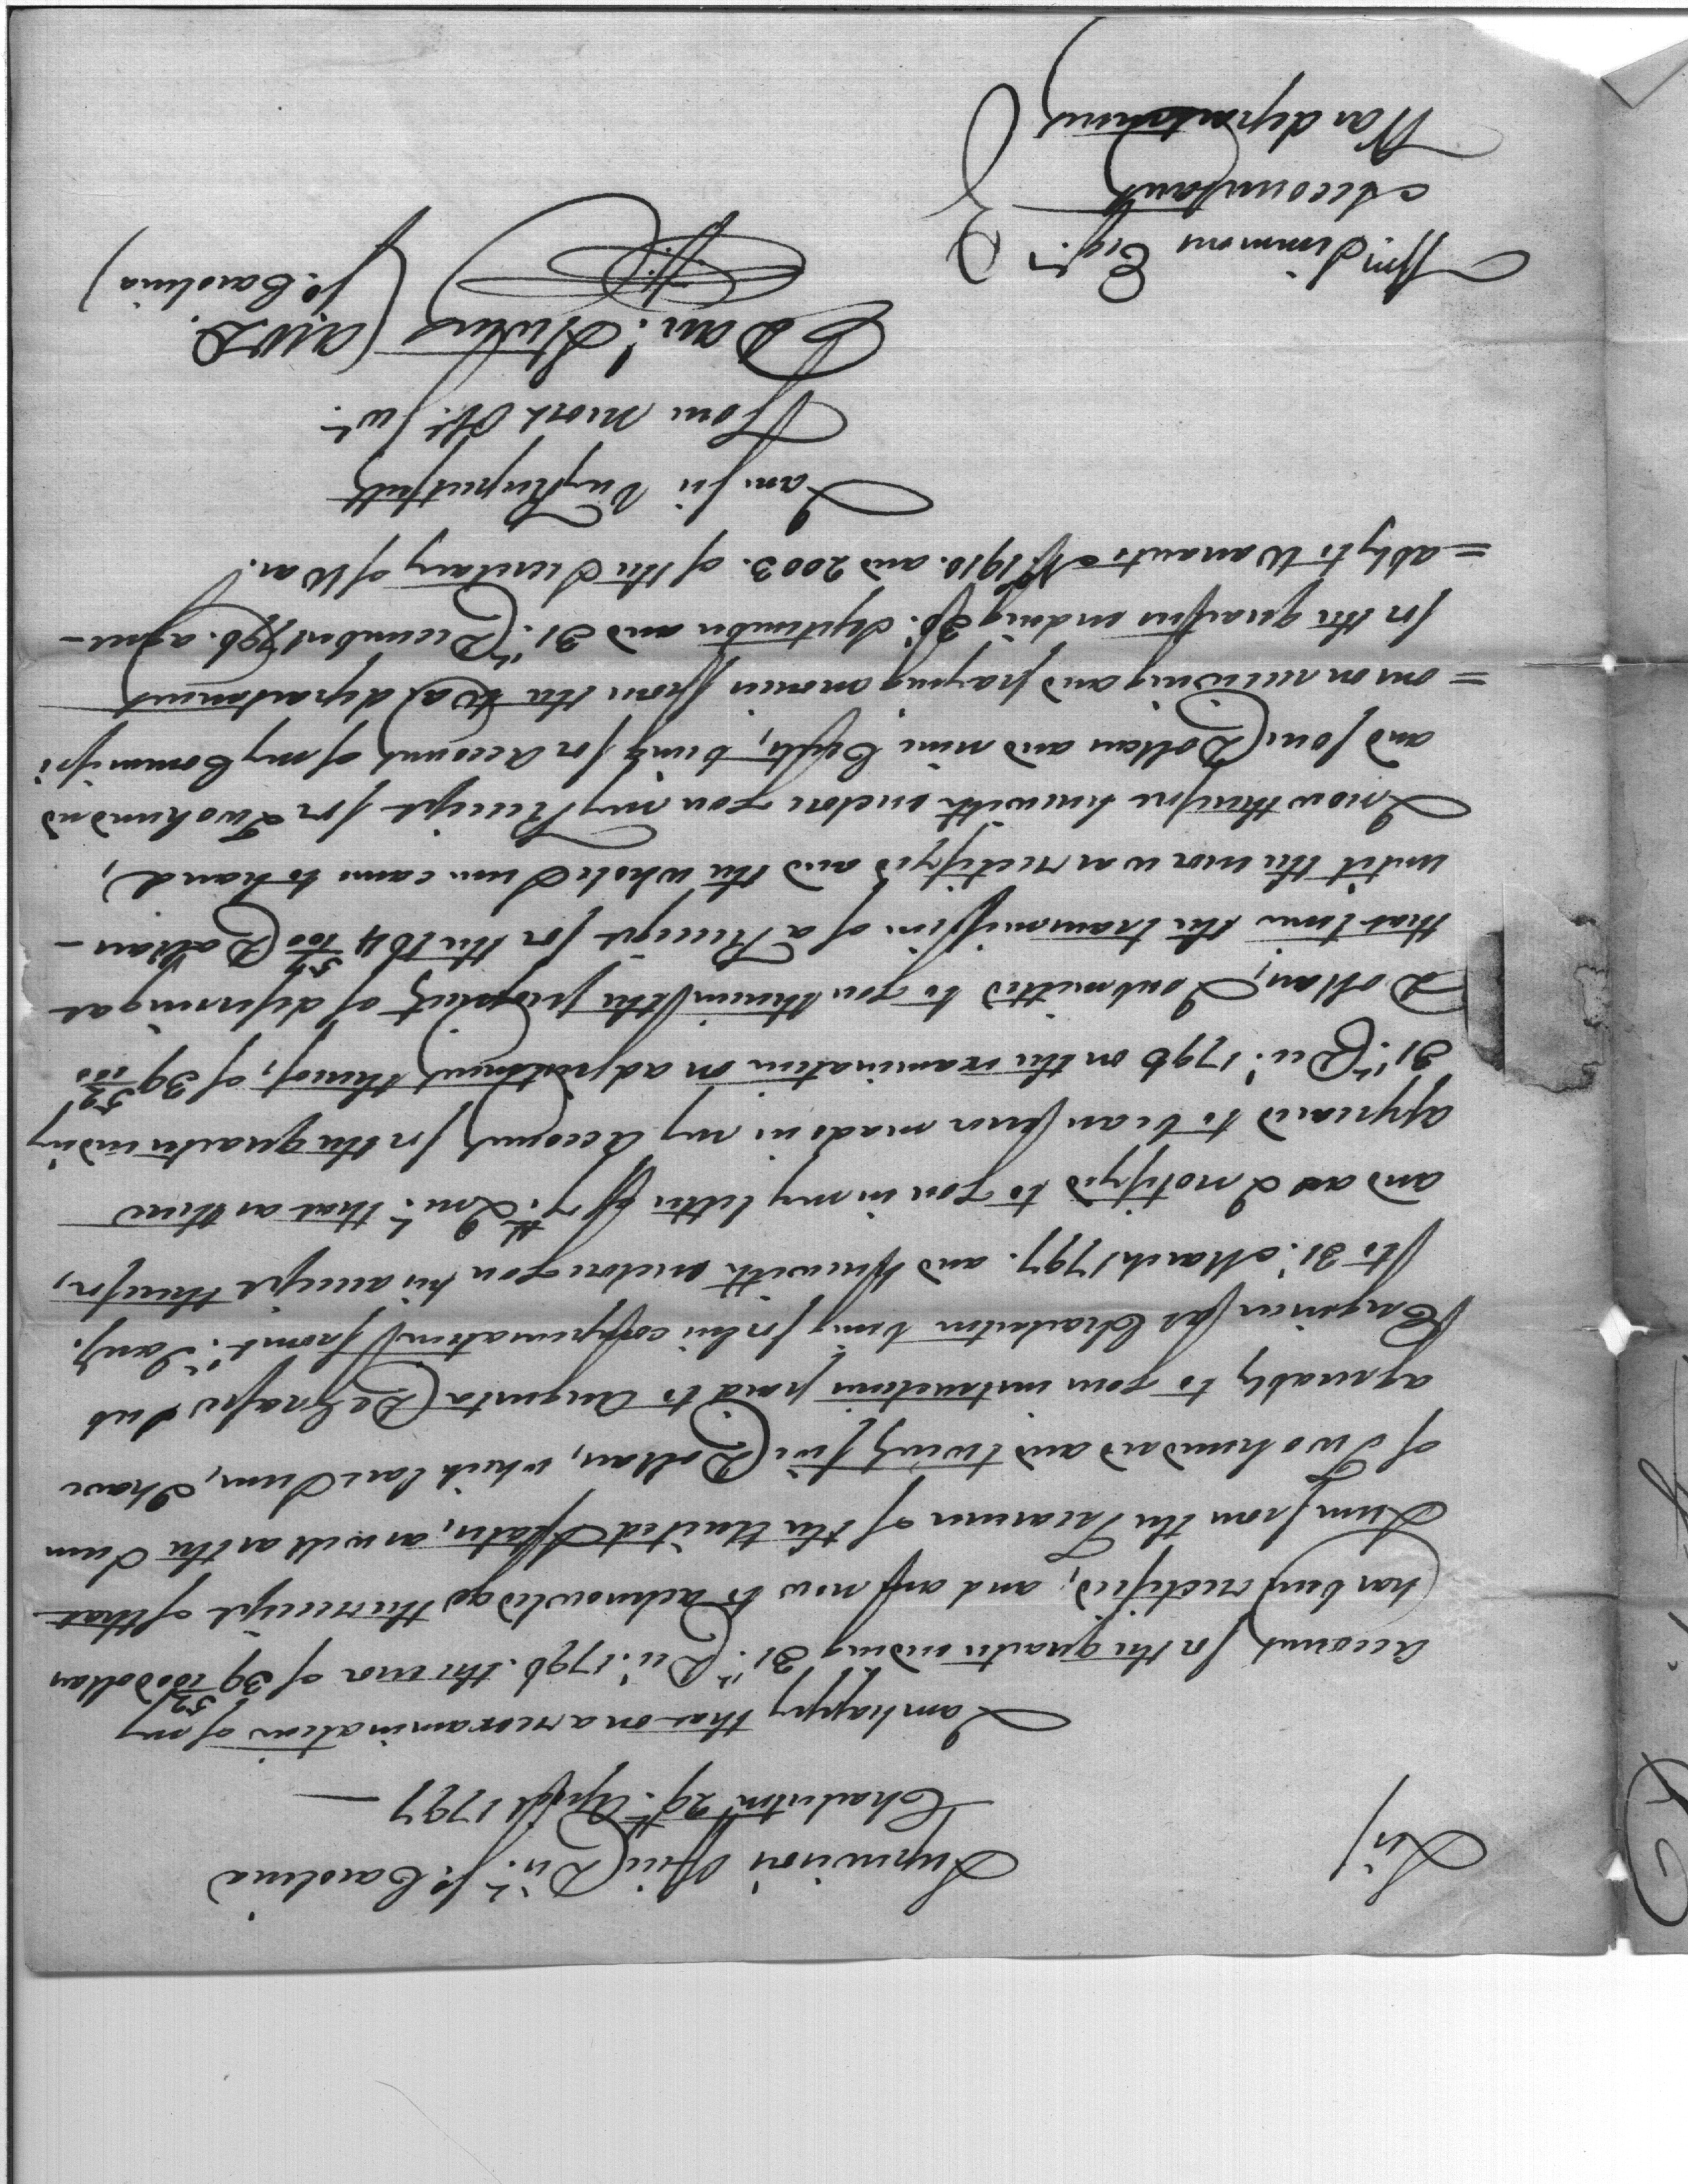 Supervisor's Office Dist. So. Carolina
Charleston 29th. April 1797
Sir/
I am happy that on a reexamination of my
Account for the quarter ending 31st. Decr. 1796. the error of 39 52/100 dollars
has been rectified, and am now to acknowledge the receipt of that
Sum from the Treasurer of the United States, as well as the Sum
of Two hundred and twenty five Dollars, which last Sum, I have
agreeably to your instructions paid to Augusta DeGrasse Sub
Engineer for Charleston being for his compensation from 1st. Jany.
to 31st. March 1797. and herewith enclose you his receipt therefor,
and as I notifyed to you in my letter of 7th. Inst. that as there
appeared to be an error made in my Account for the quarter ending
31st. Decr. 1796 on the examination or adjustment thereof, of 39 52/100
Dollars, I submitted to you therein the propriety of deferring at
that time the transmission of a Receipt for the 164 57/100 Dollars
until the error was rectifyed and the whole Sum came to hand,
I now therefore herewith enclose you my Receipt for Two hundred
and four Dollars and nine Cents, being for Account of my Commissi
=ons on receiving and paying monies from the War department
for the quarters ending 30th. September and 31st. December 1796. agree-
=ably to Warrants No. 1910. and 2003. of the Secretary of War.
I am Sir Very Respectfully
Your most Obt. Svt.
Danl. Stevens
So. Carolina
Wm. Simmons Esqr.
Accountant
War department